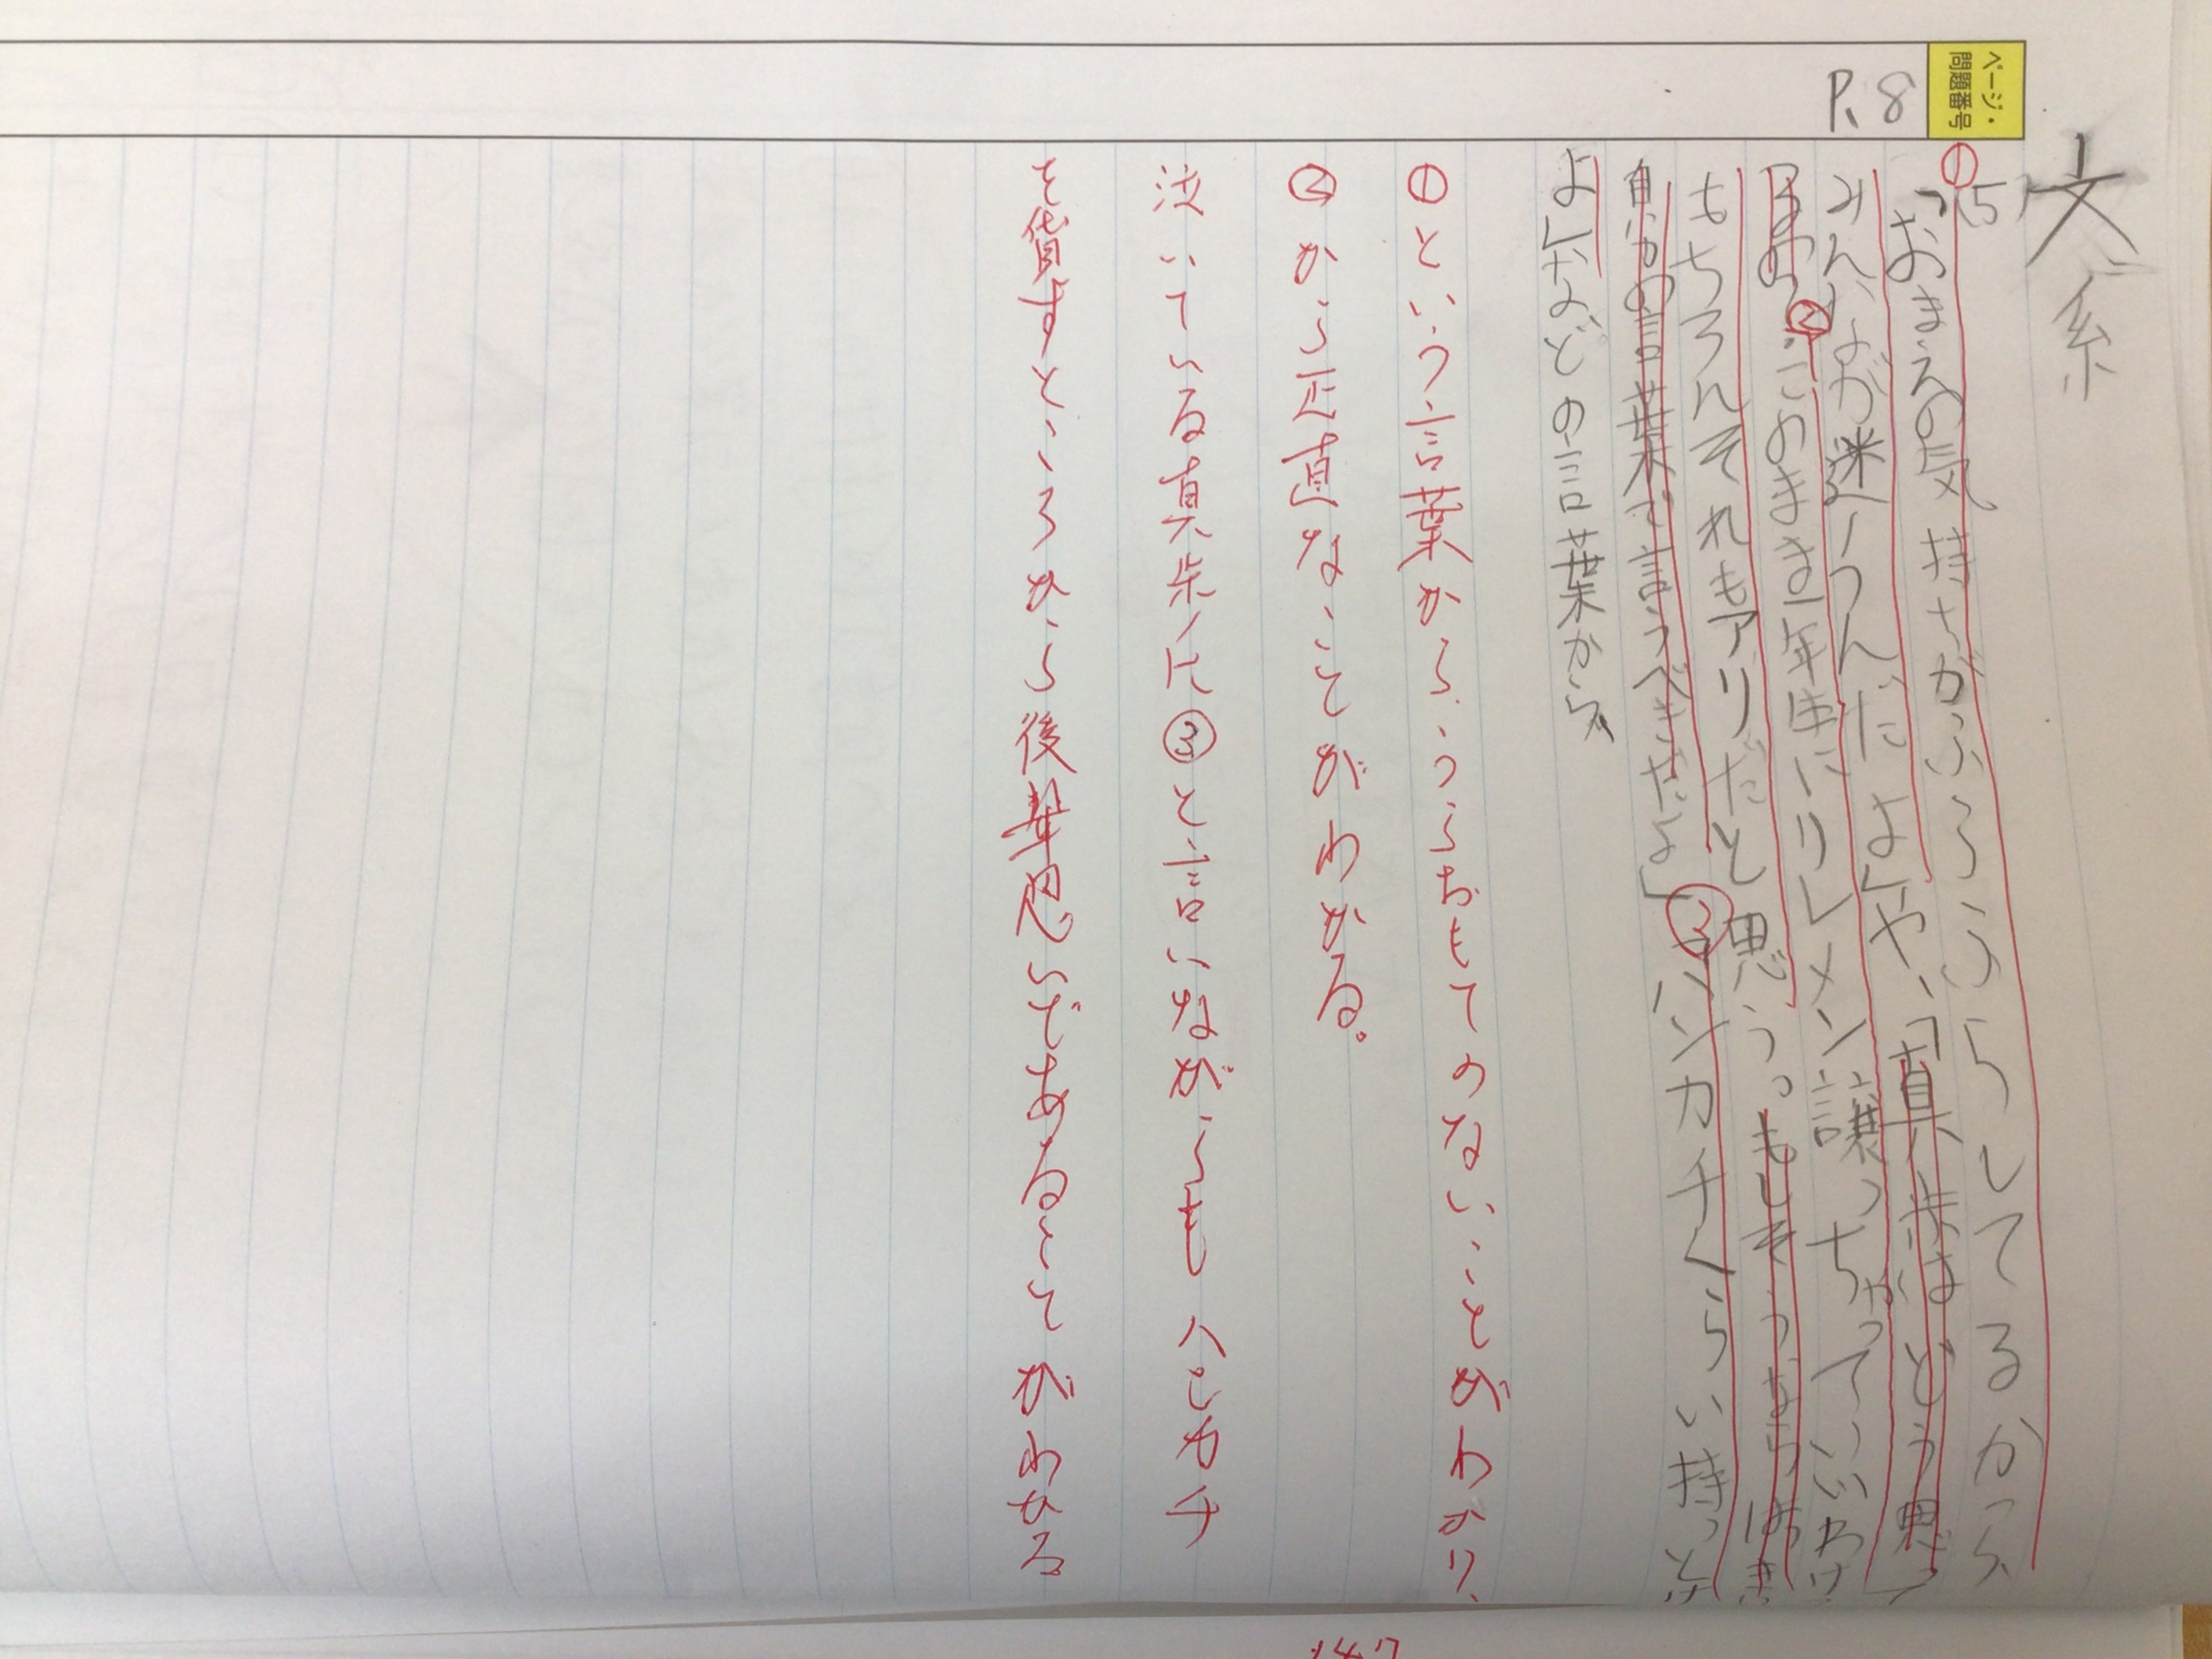 文系
ページ・
問題番号
P. 8
(5)
①「おまえの気持ちがふらふらしてるから、
みんなが迷うんだよ」や、「真歩はどう思っ
てるの ②このまま一年生にリレメン譲っちゃっていいわけ
もちろんそれもアリだと思う。もしそうならはっき
自分の言葉で言うべきだよ」③「ハンカチくらい持っとけ
よ」などの言葉から、
①という言葉から、うらおもてのないことがわかり、
②から正直なことがわかる。
泣いている真歩に③と言いながらもハンカチ
を貸すところから後輩思いであることがわかる
147